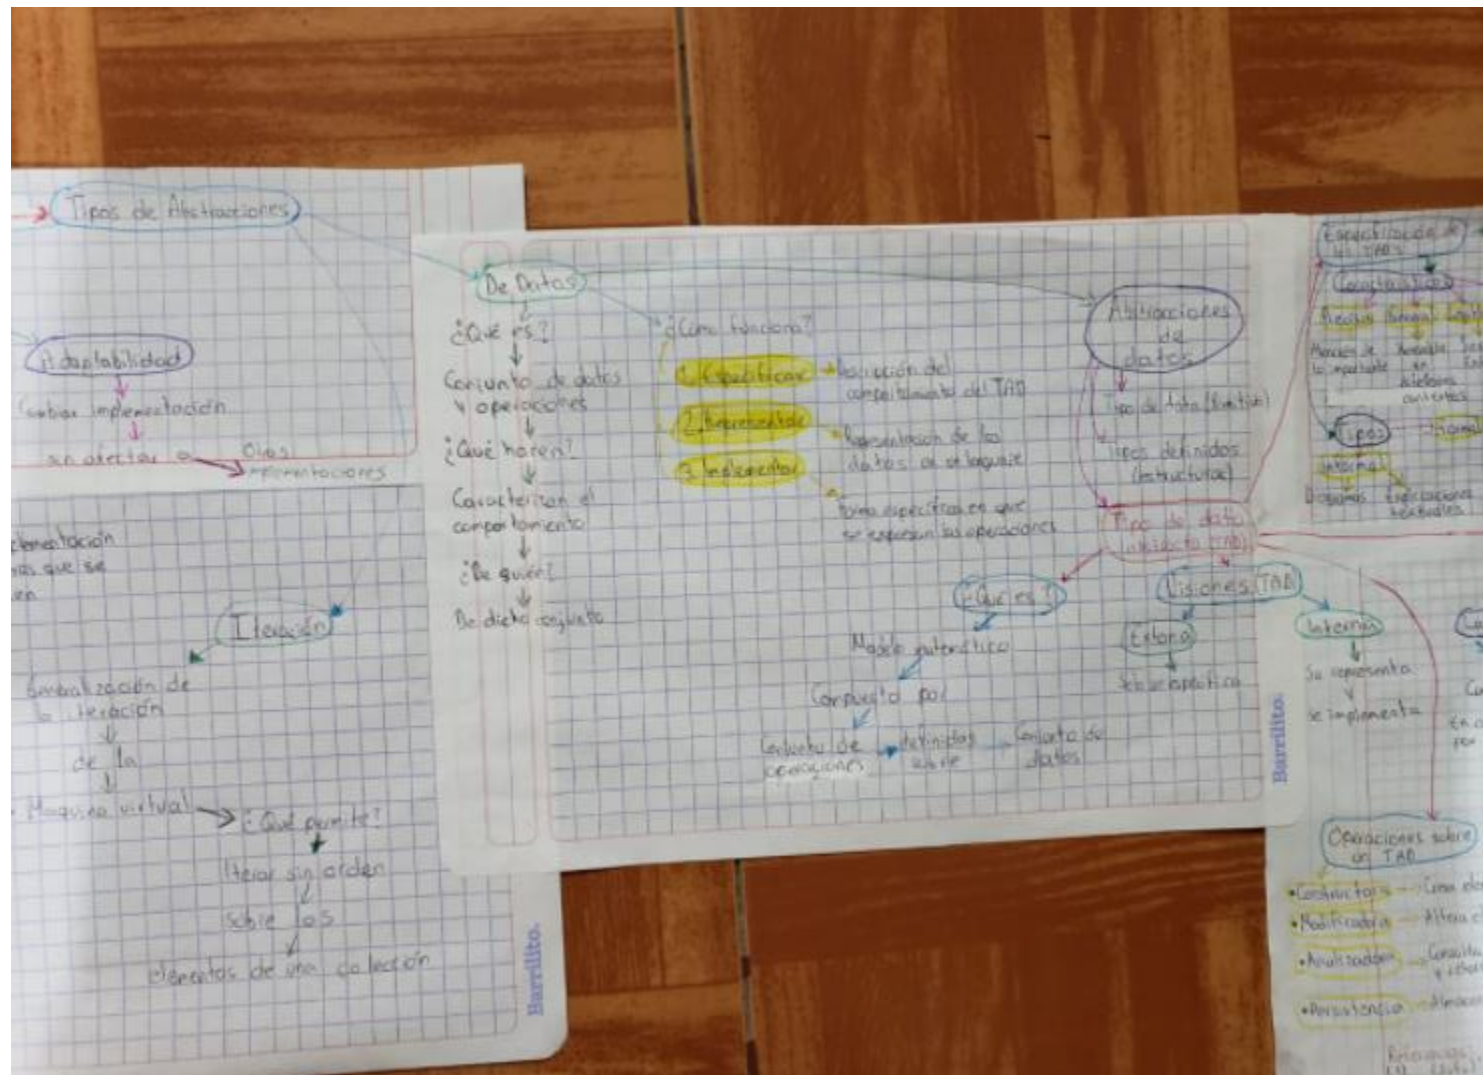 Tipos de Abstracciones
Adaptabilidad
Cambiar implementación
sin afectar a
Otras
implementaciones
Iteración
Generalización de
la iteración
de la
Maquina virtual
¿Qué permite?
Iterar sin orden
sobre los
elementos de una colección
Barrilito.
De Datos
¿Qué es?
Conjunto de datos
y operaciones
¿Qué hacen?
Caracterizan el
comportamiento
¿De quién?
De dicho conjunto
¿Cómo funciona?
1. Especificar
Descripción del
comportamiento del TAD
2. Representar
Representación de los
datos en un lenguaje
3. Implementar
forma específica en que
se expresan sus operaciones
Abstracciones
de
datos
Tipo de dato (Primitivo)
Tipos definidos
(Estructuras)
Tipo de dato
abstracto (TAD)
¿Qué es?
Modelo matemático
Compuesto por
Conjunto de
operaciones
definidas
sobre
Conjunto de
datos
Visiones TAD
Externa
Se especifica
Barrilito.
Interna
Se representa
y
se implementa
Especificación de
los TADs
Características
General
Mención de
lo importante
en
distintos
contextos
Tipos
Informal
Diagramas
Explicaciones
textuales
Operaciones sobre
un TAD
•Constructora
Crea
•Modificadora
Altera
•Analizadora
Consulta
•Persistencia